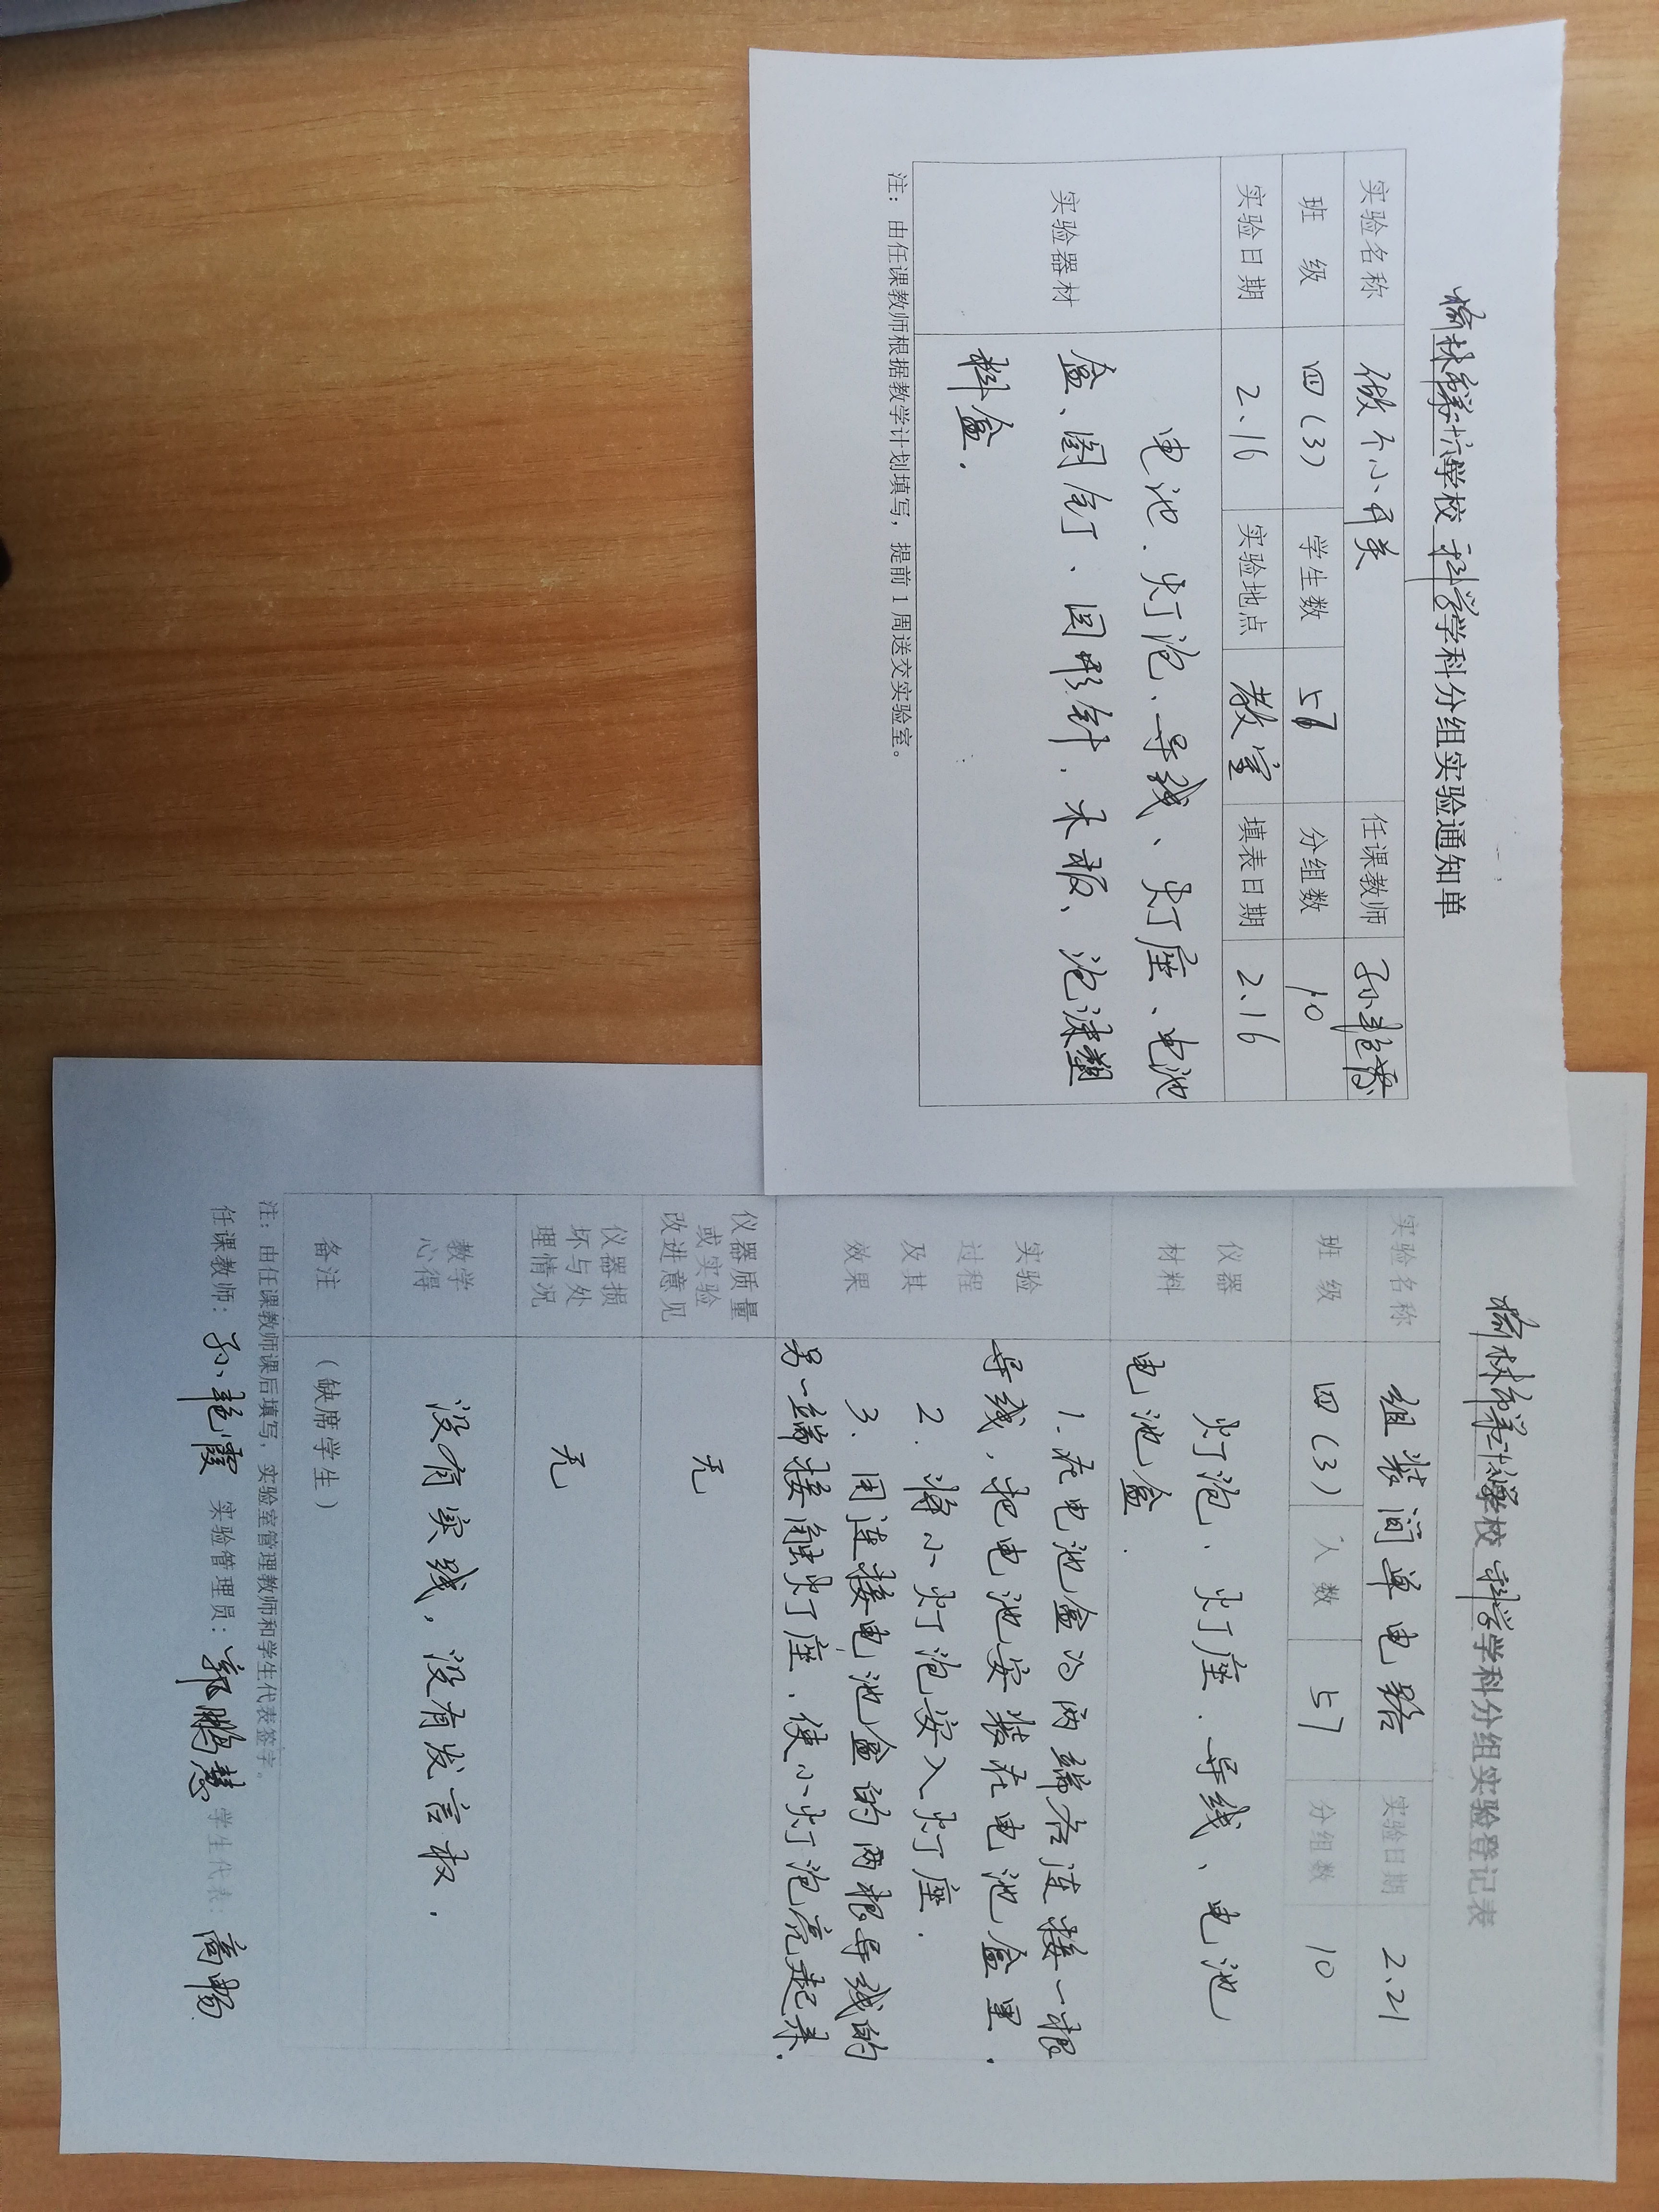 学校科学学科分组实验通知单
实验名称 做个小开关 任课教师 孙艳霞
班 级 四(3) 学生数 57 分组数 10
实验日期 2.16 实验地点 教室 填表日期 2.16
实验器材
电池、灯泡、导线、灯座、电池
盒、图钉、回形针、木板、泡沫塑
料盒.
注：由任课教师根据教学计划填写，提前1周送交实验室。
学校科学学科分组实验登记表
实验名称 组装简单电路 实验日期 2.21
班 级 四(3) 人 数 57 分组数 10
仪器
材料
灯泡、灯座、导线、电池
电池盒.
实验
过程
及其
效果
1.在电池盒的两端各连接一根
导线,把电池安装在电池盒里.
2.将小灯泡安入灯座.
3.用连接电池盒的两根导线的
另一端接触灯座,使小灯泡亮起来.
仪器质量
或实验
改进意见
无
仪器损
坏与处
理情况
无
教学
心得
没有实践,没有发言权.
备注 （缺席学生）
注：由任课教师课后填写，实验室管理教师和学生代表签字。
任课教师：孙艳霞 实验管理员：郭鹏慧 学生代表：高畅